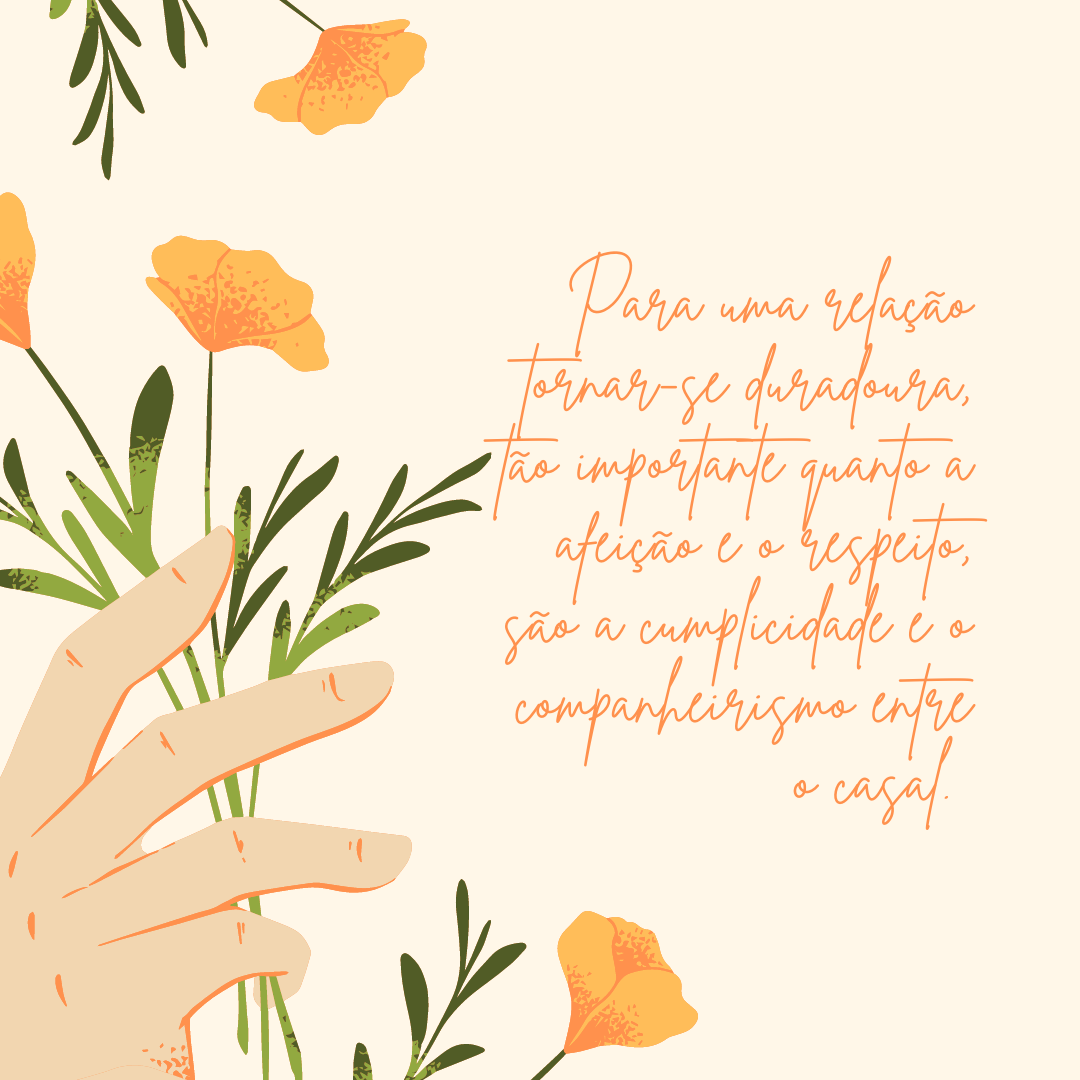 Para uma relação
tornar-se duradoura,
tão importante quanto a
afeição e o respeito,
são a cumplicidade e o
companheirismo entre
o casal.